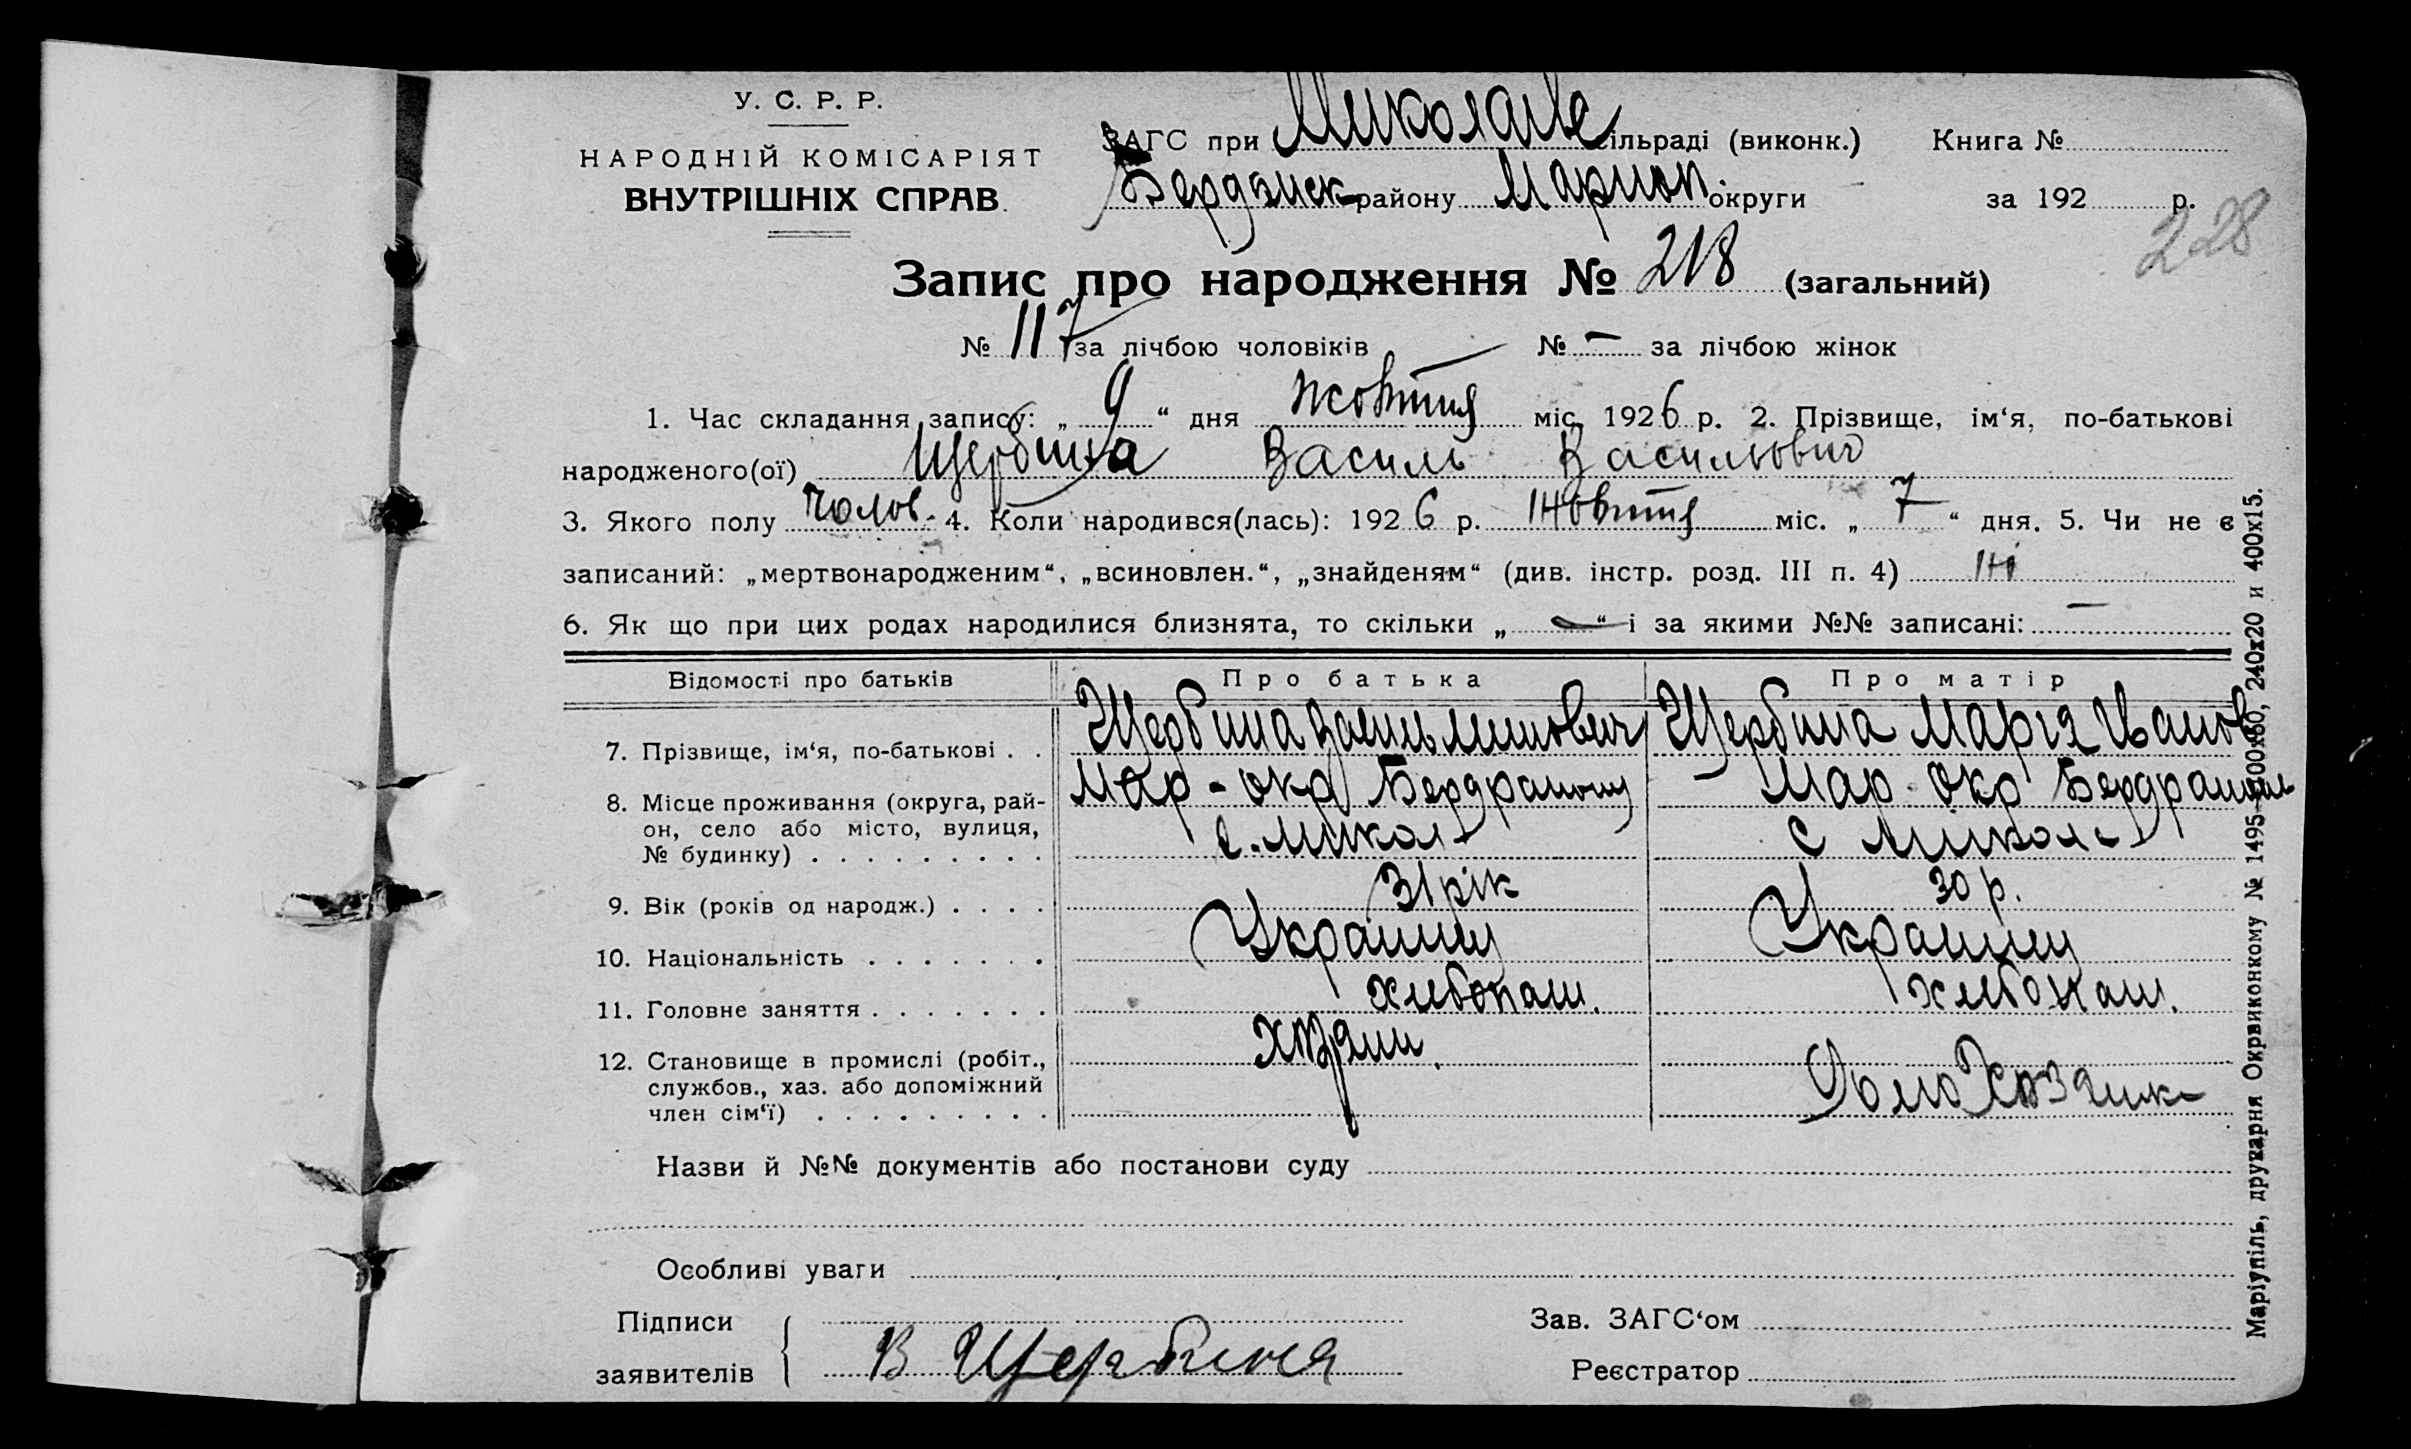 У. С. Р. Р.
НАРОДНІЙ КОМІСАРІЯТ
ВНУТРІШНІХ СПРАВ.
ЗАГС при Миколаїве сільраді (виконк.) Книга №
Бердянск району Мариоп. округи за 192 р.
228
Запис про народження № 218 (загальний)
№ 117 за лічбою чоловіків № – за лічбою жінок
1. Час складання запису: „ 9 “ дня жовтня міс. 1926 р. 2. Прізвище, ім‘я, по-батькові
народженого(ої) Щербина Василь Васильович
3. Якого полу чолов. 4. Коли народився(лась): 1926 р. жовтня міс. „ 7 “ дня. 5. Чи не є
записаний: „мертвонародженим“, „всиновлен.“, „знайденям“ (див. інстр. розд. III п. 4) ні
6. Як що при цих родах народилися близнята, то скільки „ – “ і за якими №№ записані: –
Відомості про батьків Про батька Про матір
7. Прізвище, ім‘я, по-батькові . . Щербина Василь Щербина Марія Іванов
8. Місце проживання (округа, рай- Мар - окр Бердрайону Мар окр Бердрайон
он, село або місто, вулиця, с. Микол с Микол
№ будинку)
9. Вік (років од народж.) 31 рік 30 р.
10. Національність Украинц Украинц
11. Головне заняття хлібопаш. хлібопаш.
12. Становище в промислі (робіт., хозяин.
службов., хаз. або допоміжний Домохозяик
член сім‘ї)
Назви й №№ документів або постанови суду
Особливі уваги
Підписи Зав. ЗАГС‘ом
заявителів В Щербина Реєстратор
Маріупіль, друкарня Окрвиконкому № 1495—100х80, 240х20 и 400х15.